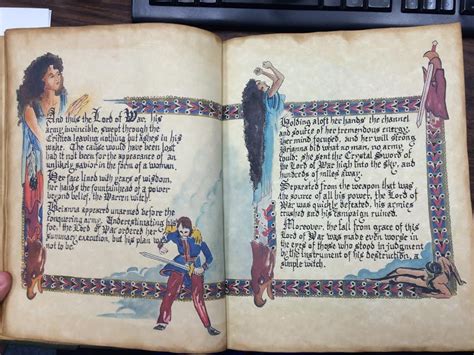 And thus the Lord of War, his
army invincible, swept through the
Cities leaving nothing but ashes in his
wake. The cause would have been
lost had it not been for the appearance of an
unlikely savior in the form of a woman.
Her face lined with years of wisdom,
her hands the fountainhead of a power
beyond belief, the Warren witch.
Brianna appeared unarmed before the
conquering army. Underestimating his
foe, the Lord of War ordered her
summary execution, but his plan was
not to be.
Holding aloft her hands the channel
and source of her tremendous energy,
her mind focused, and her will strong
Brianna did what no man, no army
could; she sent the Crystal Sword of
the Lord of War high into the sky, and
hundreds of miles away.
Separated from the weapon that was
the source of all his power, the Lord of
War was quickly defeated, his armies
crushed and his campaign ruined.
Moreover, the fall from grace of this
Lord of War was made even worse in
the eyes of those who stood in judgment
by the instrument of his destruction, a
simple witch.